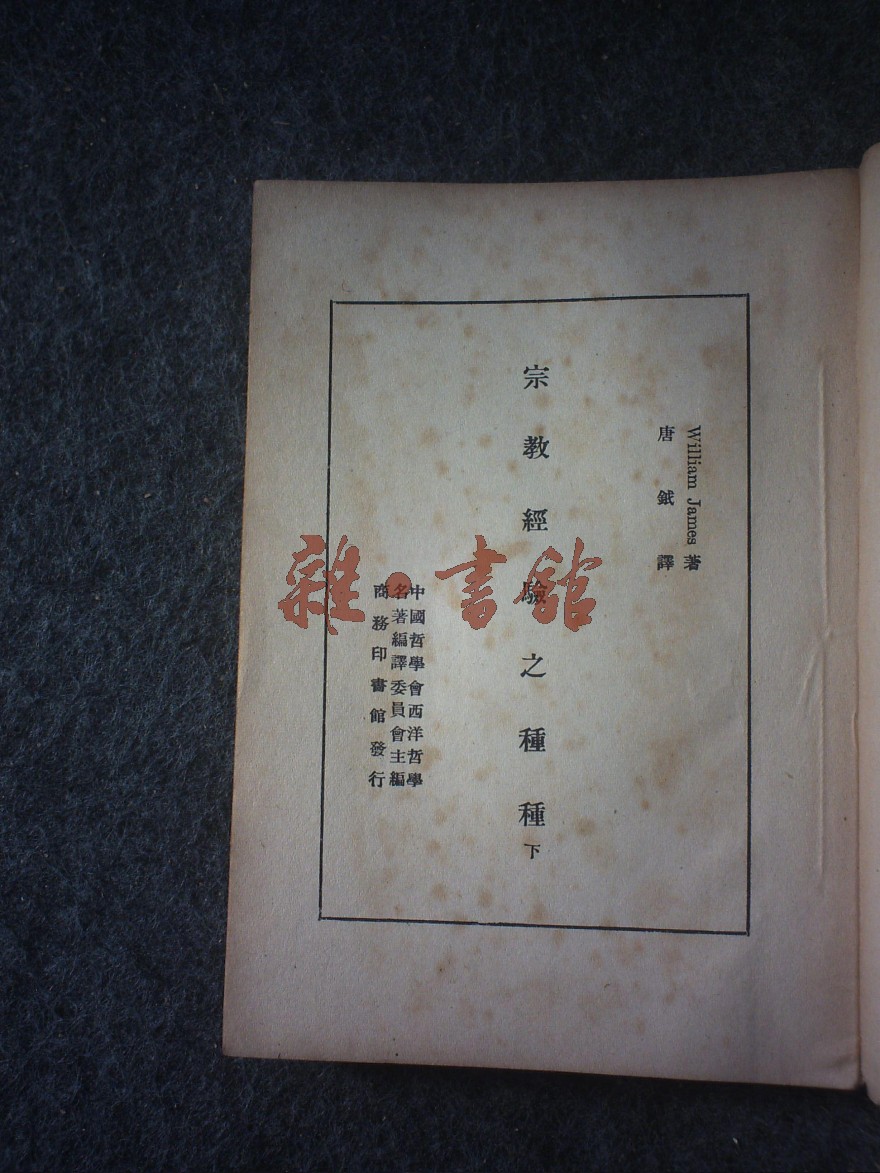 William James 著
唐鉞譯
宗教經驗之種種下
中國哲學會西洋哲學
名著編譯委員會主編
商務印書館發行
雜·書館